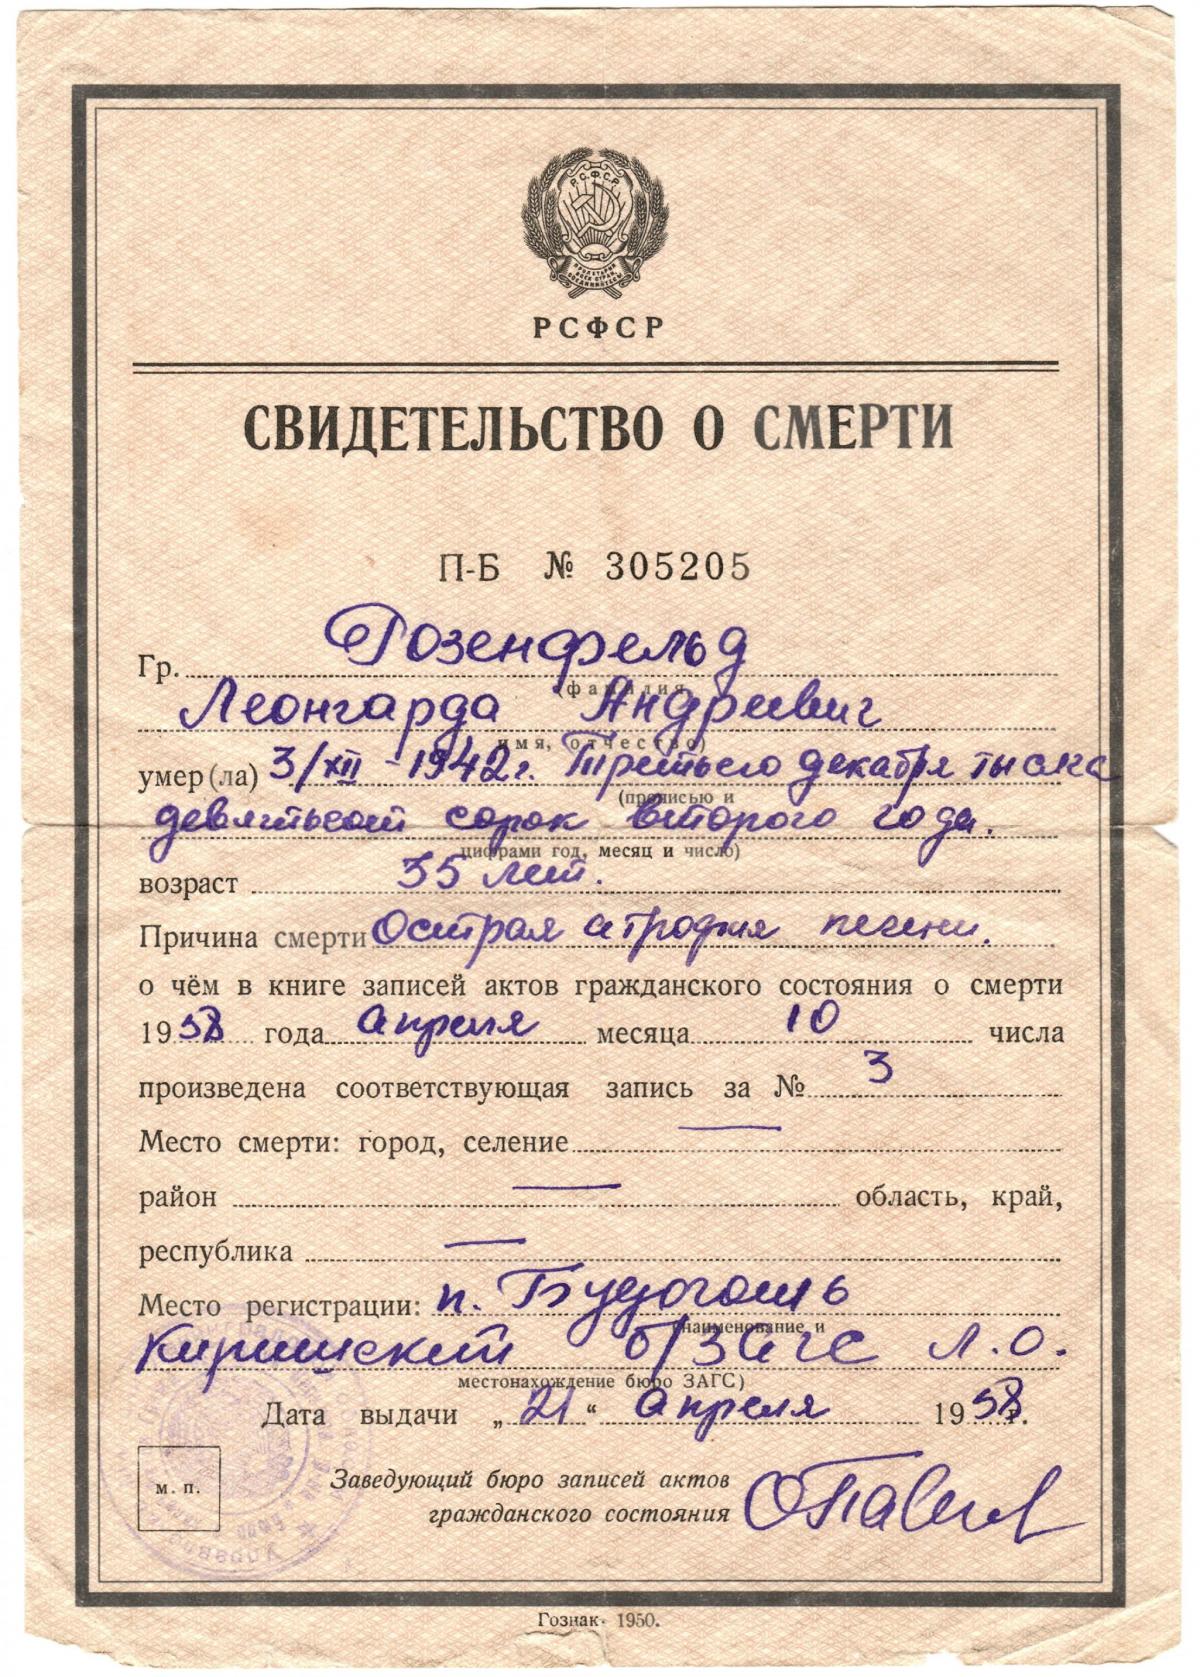 Р.С.Ф.С.Р.
РСФСР
СВИДЕТЕЛЬСТВО О СМЕРТИ
П-Б № 305205
Гр. Розенфельд
(фамилия
Леонгарда Андреевич
имя, отчество)
умер(ла) 3/XII -1942г. Третьего декабря тысяч
(прописью и
девятьсот сорок второго года.
цифрами год, месяц и число)
возраст 35 лет.
Причина смерти Острая атрофия печени.
о чём в книге записей актов гражданского состояния о смерти
1958 года апреля месяца 10 числа
произведена соответствующая запись за № 3
Место смерти: город, селение —
район — область, край,
республика —
Место регистрации: п. Будогощь
(наименование и
Киришский б/ЗАГС Л.О.
местонахождение бюро ЗАГС)
Дата выдачи „21“ апреля 1958г.
м. п.
Заведующий бюро записей актов
гражданского состояния
Гознак. 1950.